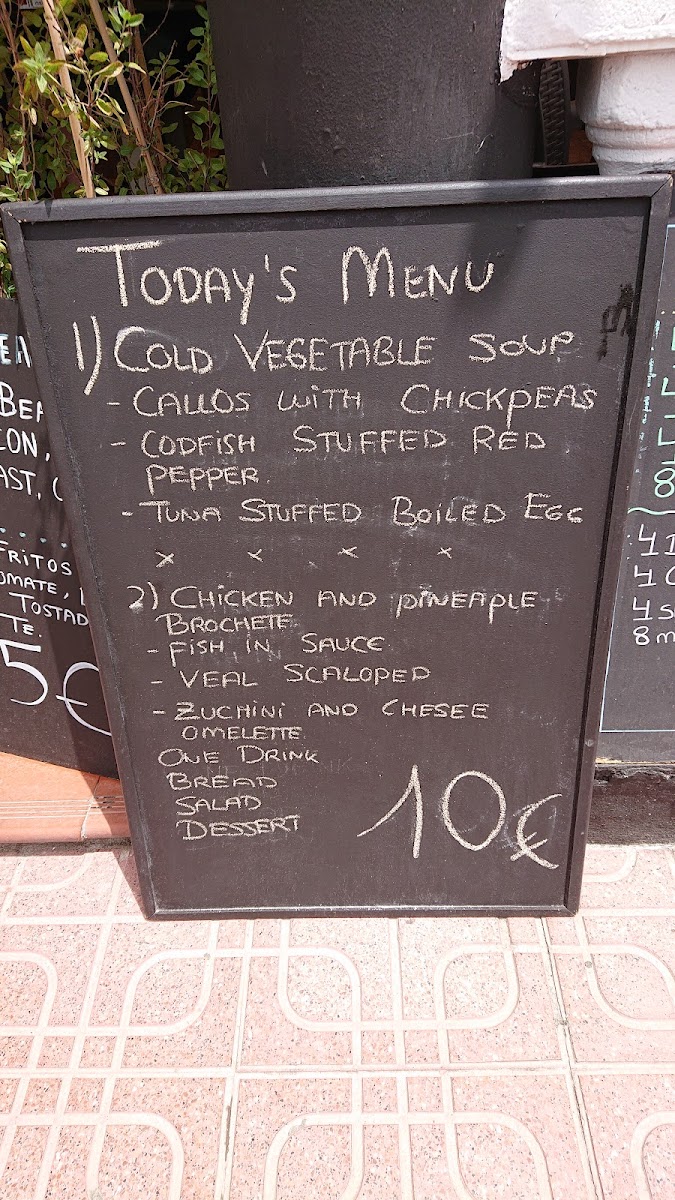 Today's Menu
1) Cold Vegetable Soup
- Callos with Chickpeas
- Codfish Stuffed Red
Pepper.
- Tuna Stuffed Boiled Egg
x x x x
2) Chicken and pineaple
Brochete
- Fish in Sauce
- Veal Scaloped
- Zuchini and Chesee
omelette.
One Drink
Bread
Salad
Dessert
10€
Fritos
Tostad
Te.
5€
8
4
4
4 s
8 m